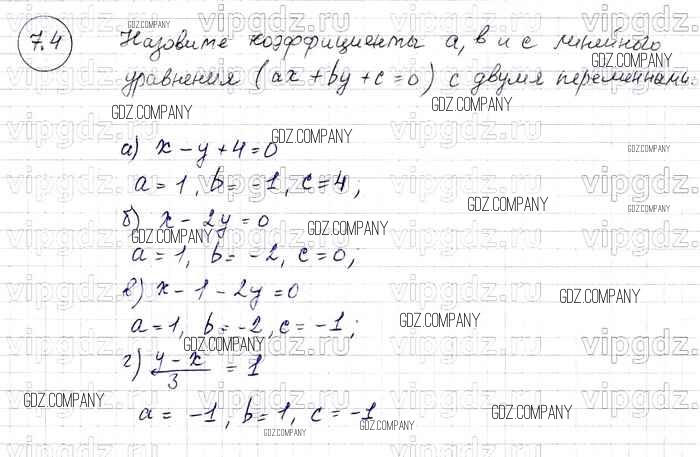 7.4 Назовите коэффициенты a, b и c линейного
уравнения (ax + by + c = 0) с двумя переменными:
а) x - y + 4 = 0
a = 1, b = -1, c = 4;
б) x - 2y = 0
a = 1, b = -2, c = 0;
в) x - 1 - 2y = 0
a = 1, b = -2, c = -1;
г) y - x / 3 = 1
a = -1, b = 1, c = -1
GDZ.COMPANY
vipgdz.ru